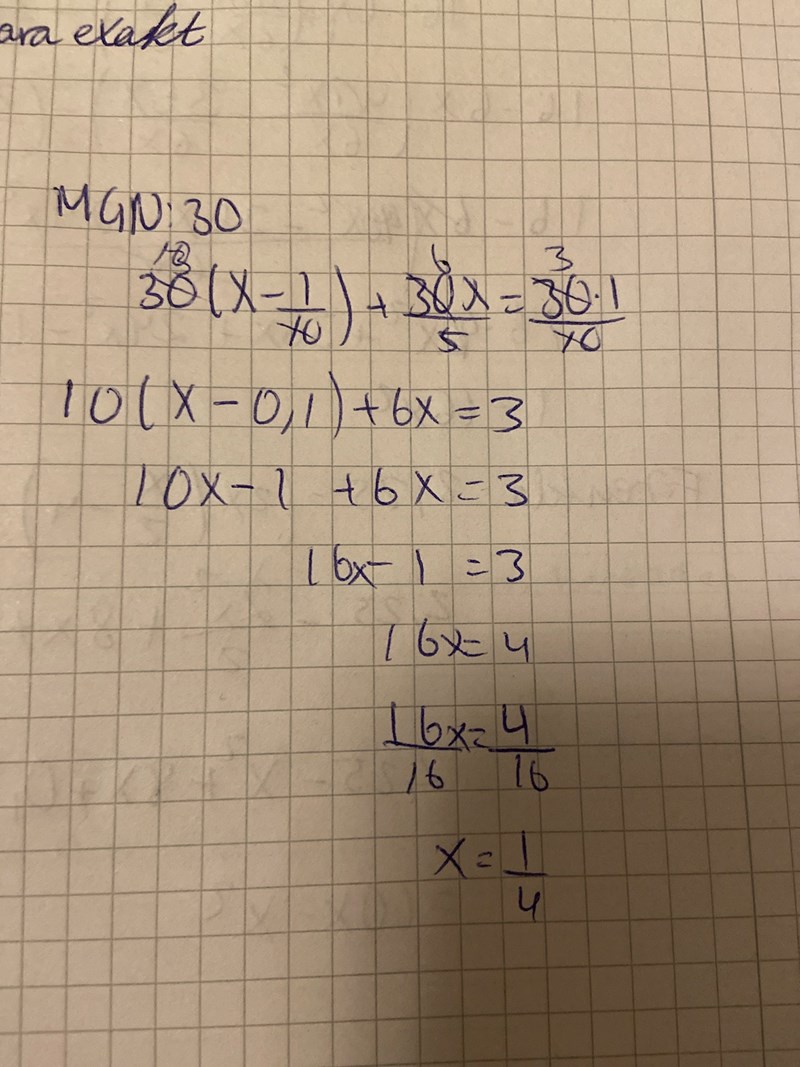 ara exakt
MGN: 30
30 10 (x - 1/10) + 30x 6/5 = 30·1 3/10
10(x - 0,1) + 6x = 3
10x - 1 + 6x = 3
16x - 1 = 3
16x = 4
16x/16 = 4/16
x = 1/4